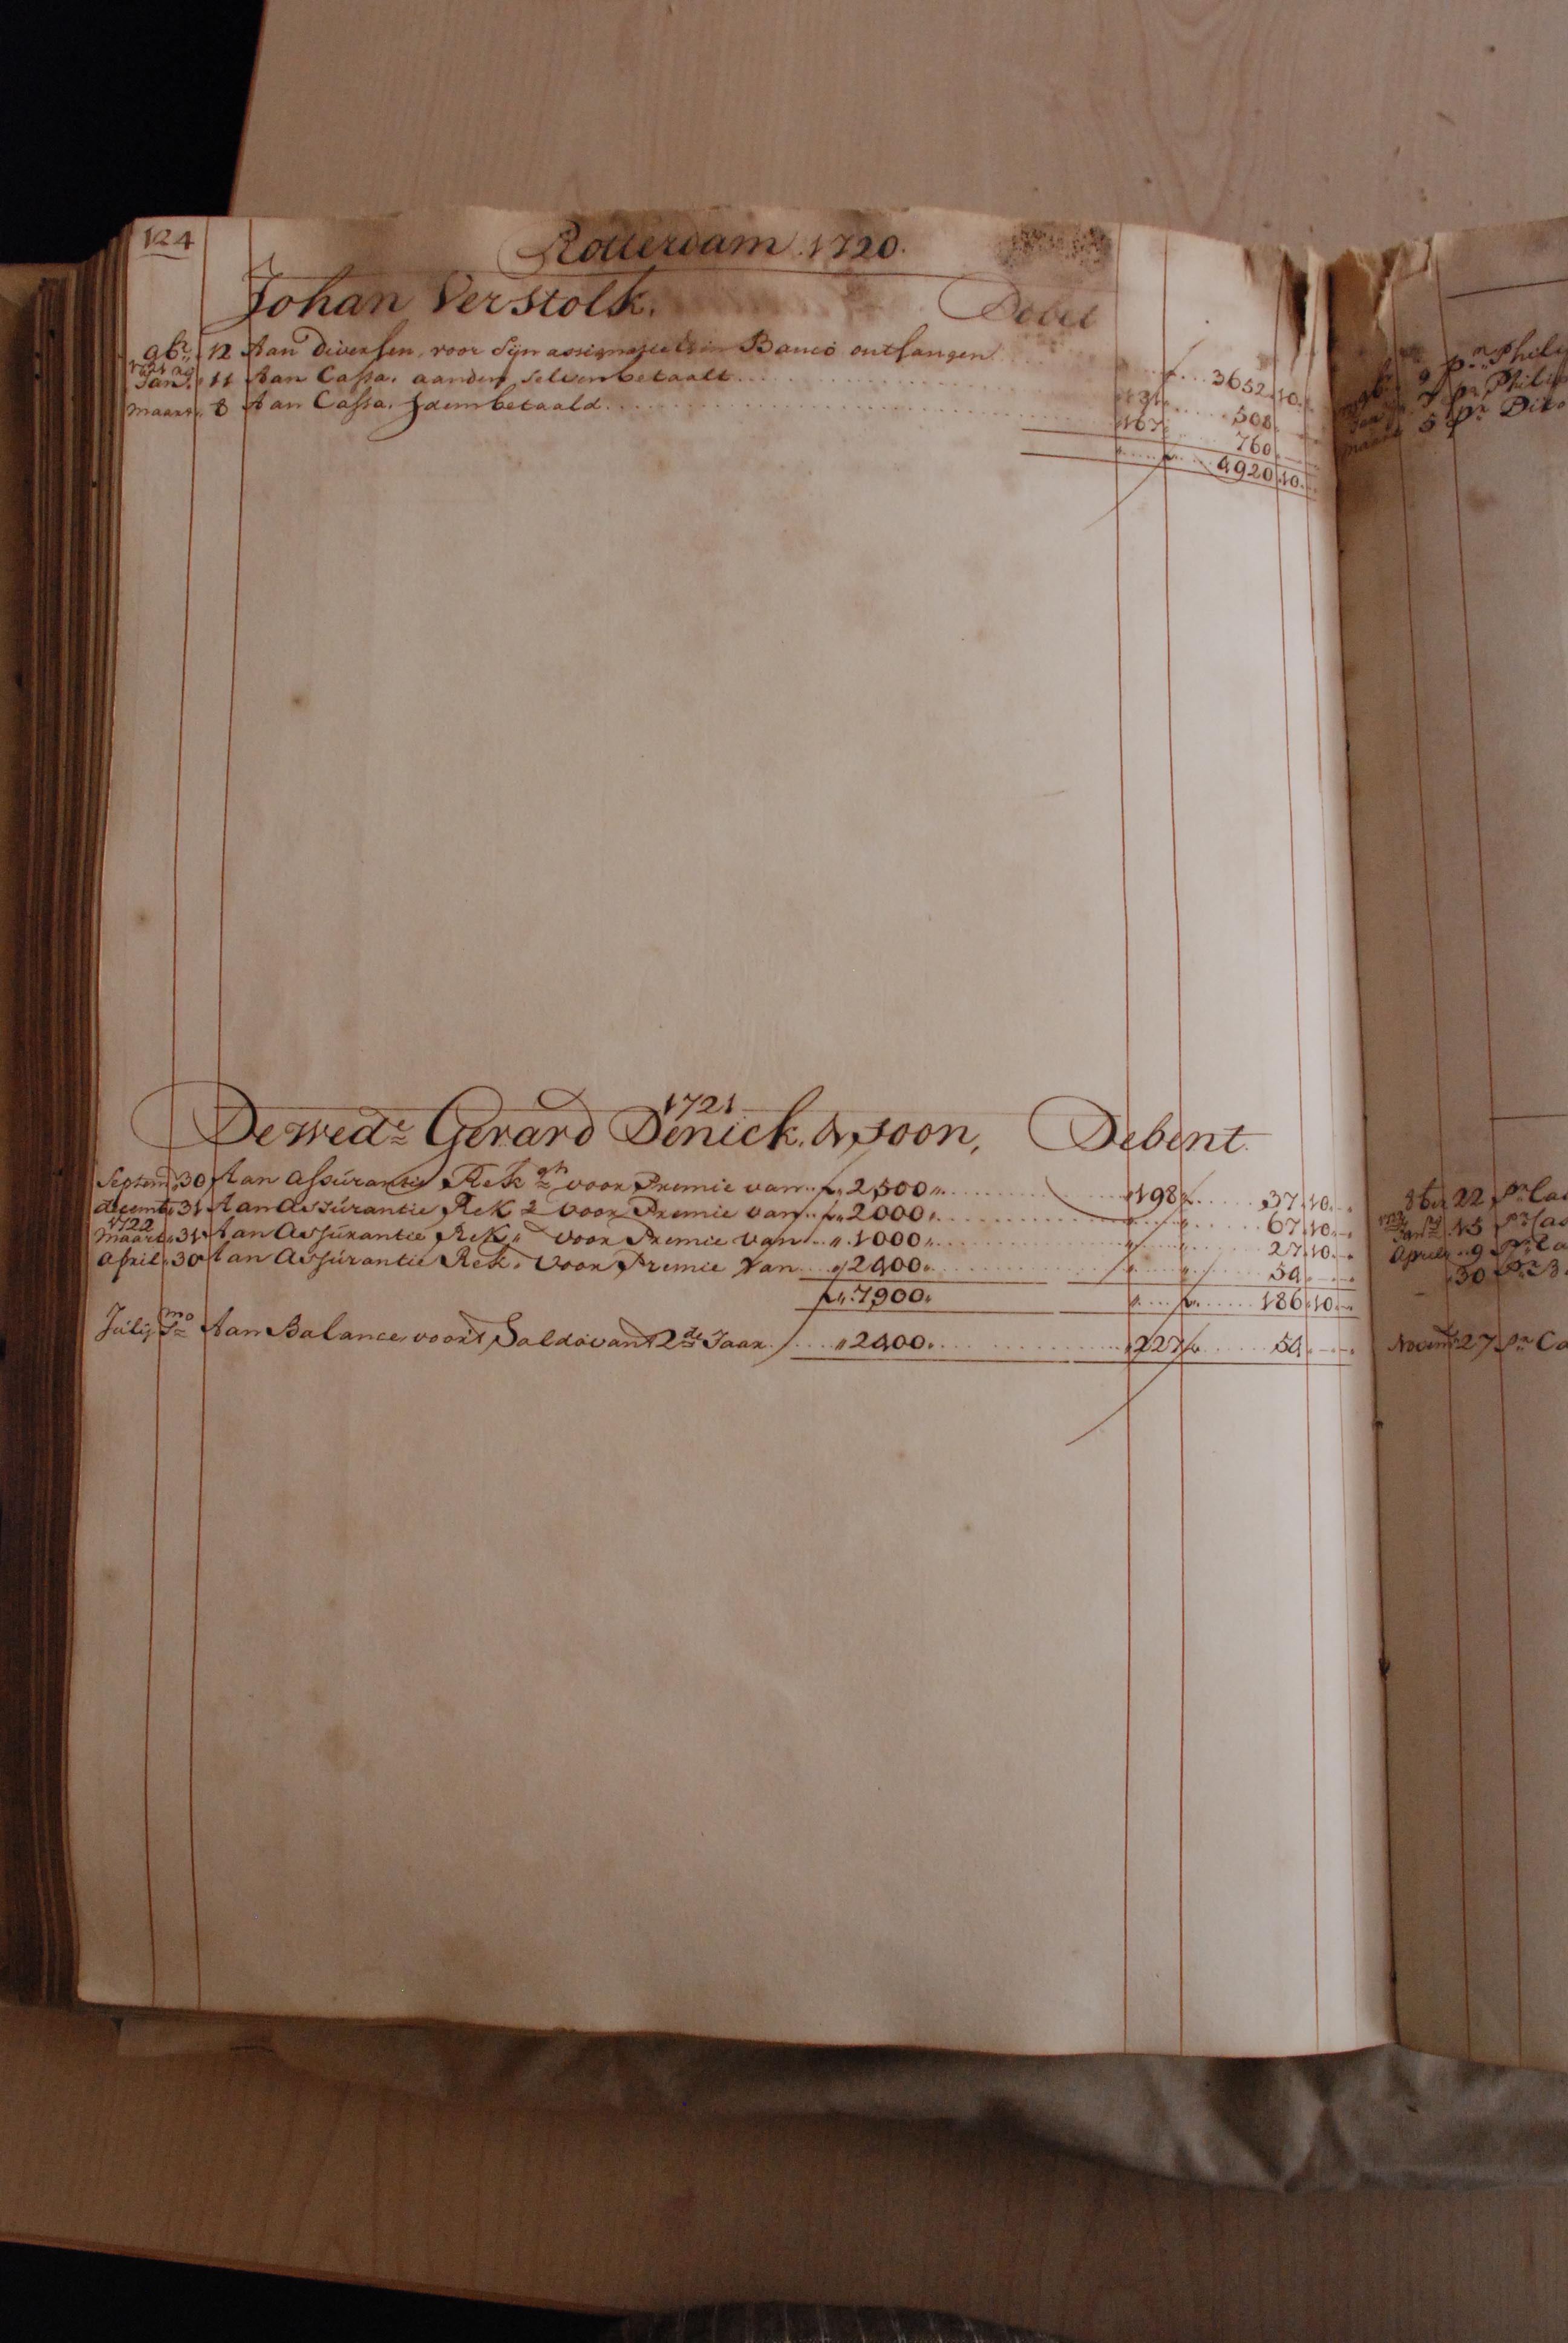 124
Rotterdam 1720.
Johan Verstolk. Debet
9br. 12 Aan Diversen, voor Sijn assignatie in Banco ontfangen ƒ 3652.10.
1721
Jan. 11 Aan Cassa. aanden selven betaalt 131 508
maart. 8 Aan Cassa. Idem betaald 167 760
4920.10.
1721
De wede Gerard Denick & soon, Debent
Septem. 30 Aan Assurantie Rek voor Premie van ƒ 2500 198 ƒ 37.10.
decemb. 31 Aan Assurantie Rek 2 voor Premie van ƒ 2000 " " 67.10.
1722
maart. 31 Aan Assurantie Rek " voor Premie van " 1000 " " 27.10.
April. 30 Aan Assurantie Rek. voor Premie van " 2400 " " 54
ƒ 7900. " ƒ 186.10.
Julij Pmo Aan Balance voor't Saldo van't 2de Jaar " 2400. 227 ƒ 54
9 pr Phili
Jan 7 pr Philip
maart 5 pr Dito
8ber 22 pr Cas
Jan 15 pr Cas
April 9 pr Ca
30 pr B
Novem 27 pr Ca